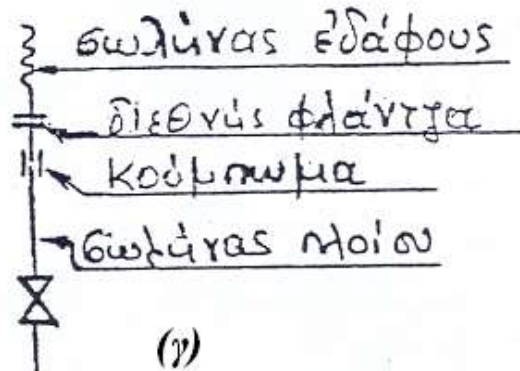 σωλήνας εδάφους
διεθνής φλάντζα
κούμπωμα
σωλήνας πλοίου
(γ)